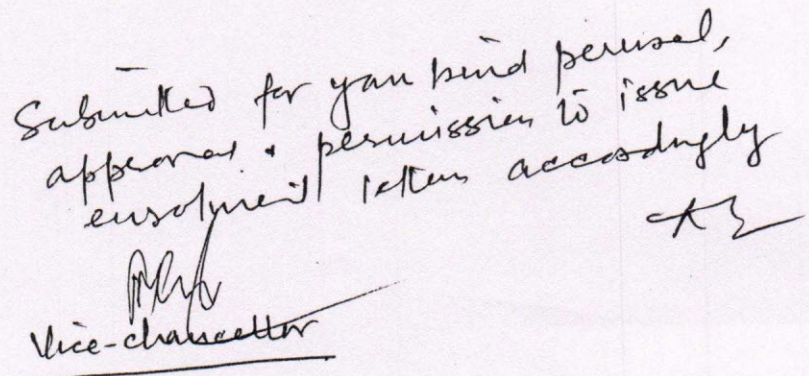 Submitted for your kind perusal,
approval & permission to issue
enrolment letters accordingly
Vice-chancellor